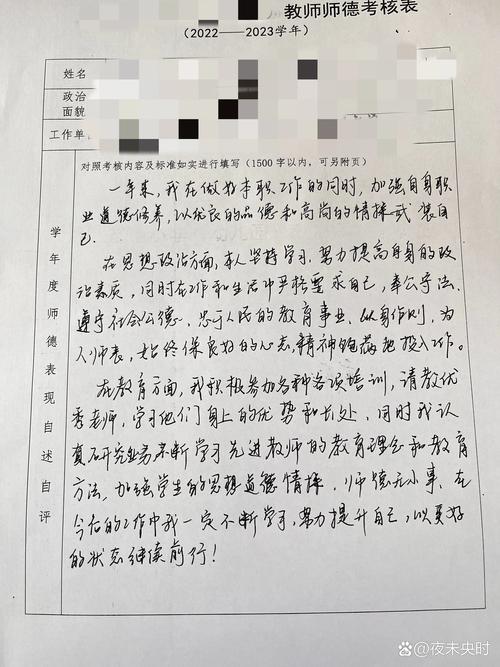 教师师德考核表
(2022——2023学年)
姓名
政治
面貌
工作单
对照考核内容及标准如实进行填写(1500字以内,可另附页)
学年度师德表现自述自评
一年来,我在做好本职工作的同时,加强自身职
业道德修养,以优良的品德和高尚的情操武装自
己.
在思想政治方面,本人坚持学习,努力提高自身的政
治素质,同时在工作和生活中严格要求自己,奉公守法.
遵守社会公德,忠于人民的教育事业.以身作则,为
人师表,始终保良好的心态,精神饱满把投入工作。
在教育方面,我积极参加各种各项培训,请教优
秀老师,学习他们身上的优势和长处,同时我认
真研究业务不断学习先进教师的教育理念和教育
方法,加强学生的思想道德情操.师德无小事.在
今后的工作中我一定不断学习,努力提升自己,以更好
的状态继续前行!
百家号/夜未央时